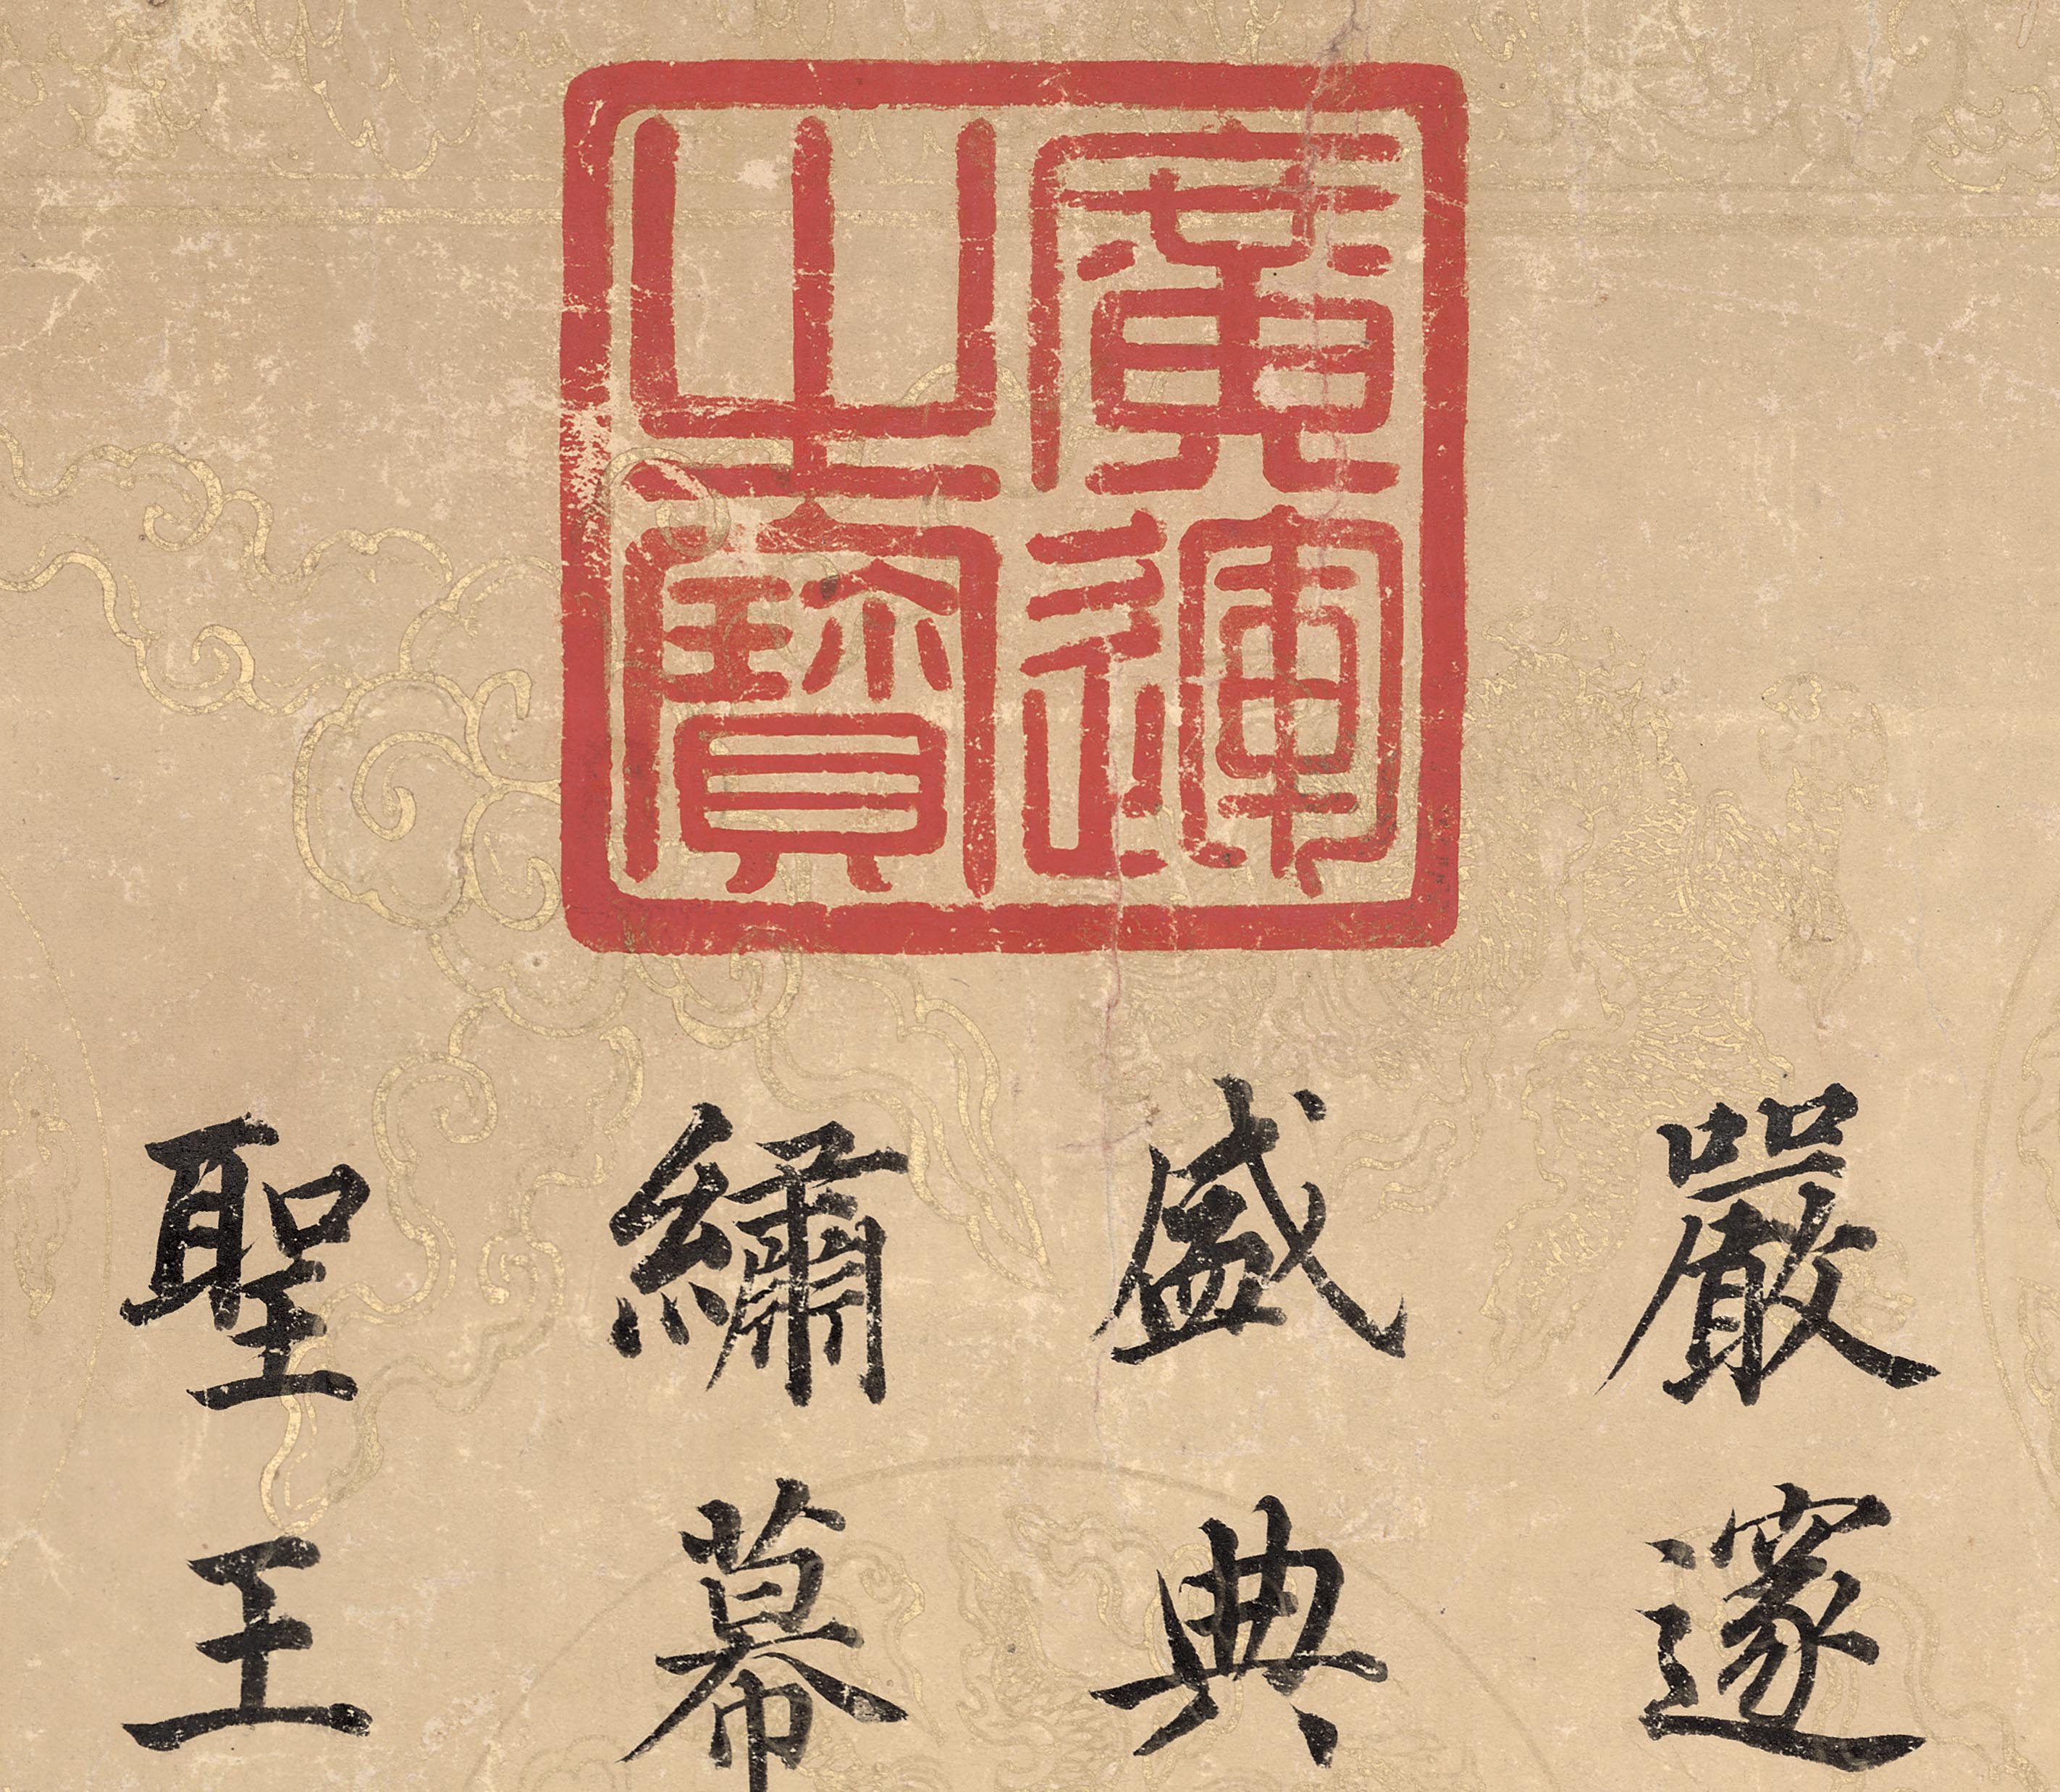 廣運
之寶
嚴邃
盛典
繡幕
聖王